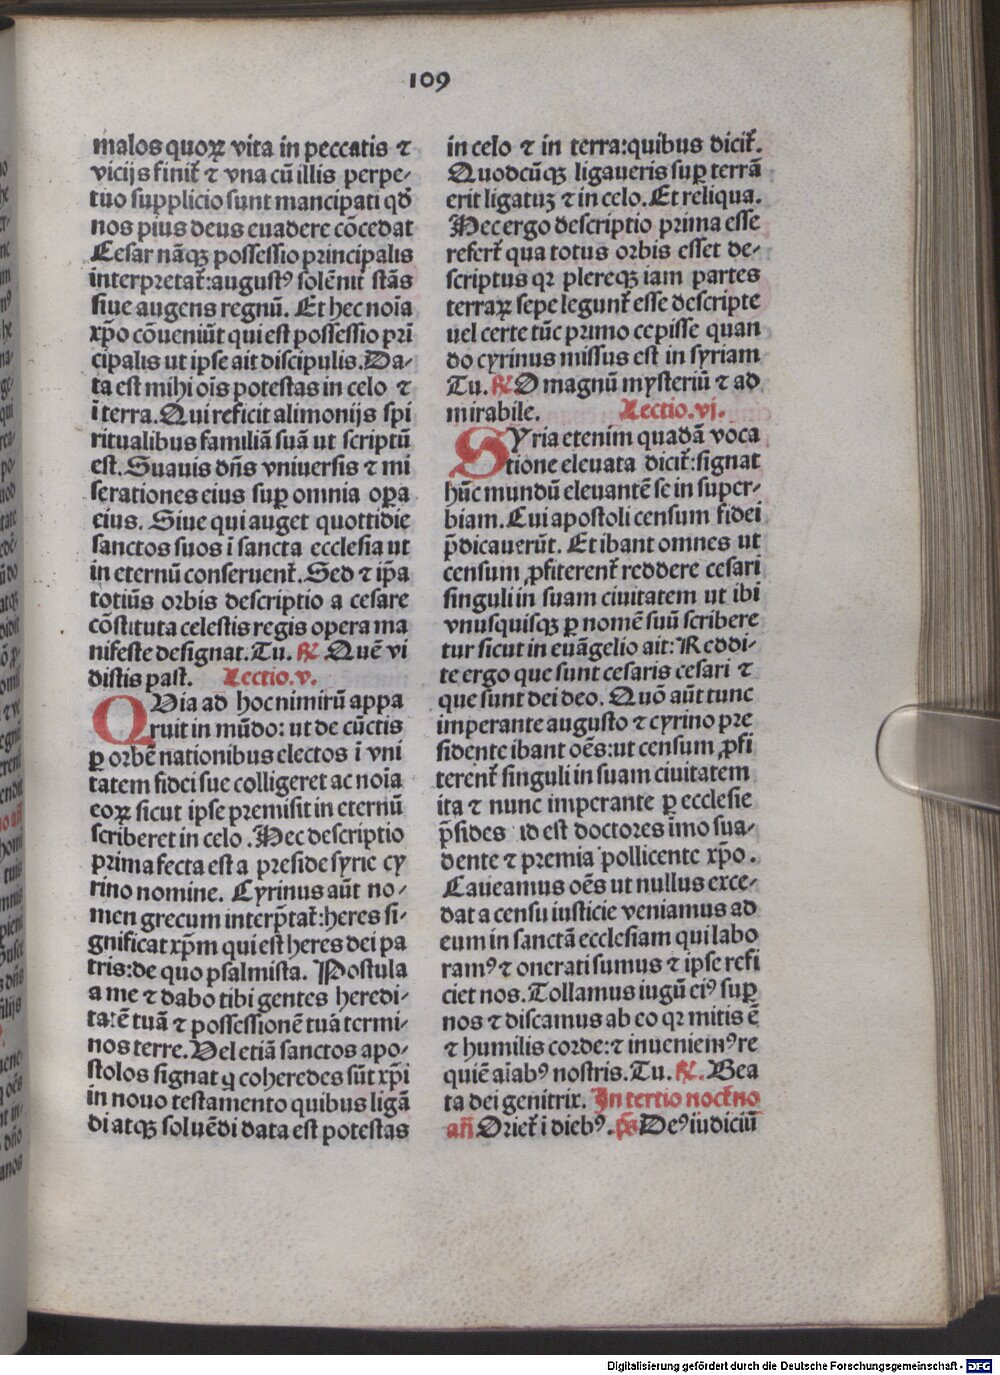 109
malos quoꝝ vita in peccatis ⁊
vicijs finit̃ ⁊ vna cũ illis perpe⸗
tuo supplicio sunt mancipati qđ
nos pius deus euadere cõcedat
Cesar nãqꝫ possessio principalis
interpretat̃:august⁹ solẽnit̃ stãs
siue augens regnũ. Et hec noĩa
xp̃o cõueniũt qui est possessio pri
cipalis ut ipse ait discipulis. Da⸗
ta est mihi oĩs potestas in celo ⁊
ĩ terra. Qui reficit alimonijs spi
ritualibus familiã suã ut scriptũ
est. Suauis dñs vniuersis ⁊ mi
serationes eius suꝑ omnia oꝑa
eius. Siue qui auget quottidie
sanctos suos ĩ sancta ecclesia ut
in eternũ conseruent̃. Sed ⁊ ip̃a
totius orbis descriptio a cesare
cõstituta celestis regis opera ma
nifeste designat. Tu. ℟ Quẽ vi
distis past. Lectio.v.
QVia ad hoc nimirũ appa
ruit in mũdo: ut de cũctis
ꝑ orbẽ nationibus electos ĩ vni
tatem fidei sue colligeret ac noĩa
eoꝝ sicut ipse premisit in eternũ
scriberet in celo. Hec descriptio
prima fecta est a preside syrie cy
rino nomine. Cyrinus aũt no⸗
men grecum interp̃tat̃:heres si⸗
gnificat xp̃m qui est heres dei pa
tris:de quo psalmista. Postula
a me ⁊ dabo tibi gentes heredi⸗
tatẽ tuã ⁊ possessionẽ tuã termi⸗
nos terre. Vel etiã sanctos apo⸗
stolos signat q̨ coheredes sũt xp̃i
in nouo testamento quibus ligã
di atqꝫ soluẽdi data est potestas
in celo ⁊ in terra:quibus dicit̃.
Quodcũqꝫ ligaueris suꝑ terrã
erit ligatuꝫ ⁊ in celo. Et reliqua.
Hec ergo descriptio prima esse
refert̃ qua totus orbis esset de⸗
scriptus qꝛ plereqꝫ iam partes
terraꝝ sepe legunt̃ esse descripte
uel certe tũc primo cepisse quan
do cyrinus missus est in syriam
Tu. ℟ O magnũ mysteriũ ⁊ ad
mirabile. Lectio.vj.
SYria etenim quadã voca
tione eleuata dicit̃:signat
hũc mundũ eleuantẽ se in super⸗
biam. Cui apostoli censum fidei
p̃dicauerũt. Et ibant omnes ut
censum ꝓfiterent̃ reddere cesari
singuli in suam ciuitatem ut ibi
vnusquisqꝫ ꝑ nomẽ suũ scribere
tur sicut in euãgelio ait: Reddi⸗
te ergo que sunt cesaris cesari ⁊
que sunt dei deo. Quõ aũt tunc
imperante augusto ⁊ cyrino pre
sidente ibant oẽs:ut censum ꝓfi
terent̃ singuli in suam ciuitatem
ita ⁊ nunc imperante ꝑ ecclesie
p̃sides id est doctores ĩmo sua⸗
dente ⁊ premia pollicente xp̃o.
Caueamus oẽs ut nullus exce⸗
dat a censu iusticie veniamus ad
eum in sanctã ecclesiam qui labo
ram⁹ ⁊ onerati sumus ⁊ ipse refi
ciet nos. Tollamus iugũ ei⁹ suꝑ
nos ⁊ discamus ab eo qꝛ mitis ẽ
⁊ humilis corde:⁊ inueniem⁹ re
quiẽ aĩab⁹ nostris. Tu. ℟. Bea
ta dei genitrix. In tertio noct̃no
añ Oriet̃ ĩ dieb⁹. p̃s De⁹ iudiciũ
Digitalisierung gefördert durch die Deutsche Forschungsgemeinschaft - DFG